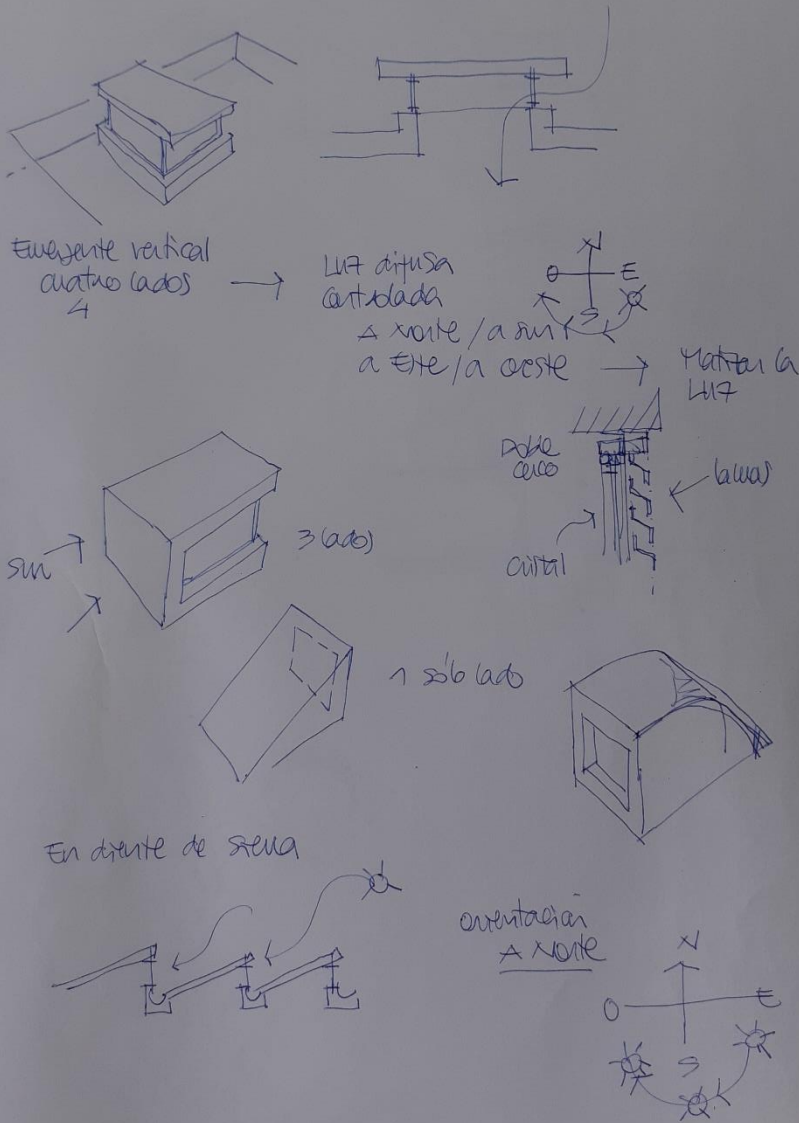 Emergente vertical
cuatro lados
4
Luz difusa
controlada
A Norte / a sur
a Este / a oeste
Matizar la
Luz
N
O E
S
Doble
cerco
lamas
cristal
sur
3 lados
1 sólo lado
En diente de sierra
orientación
A Norte
N
O E
S